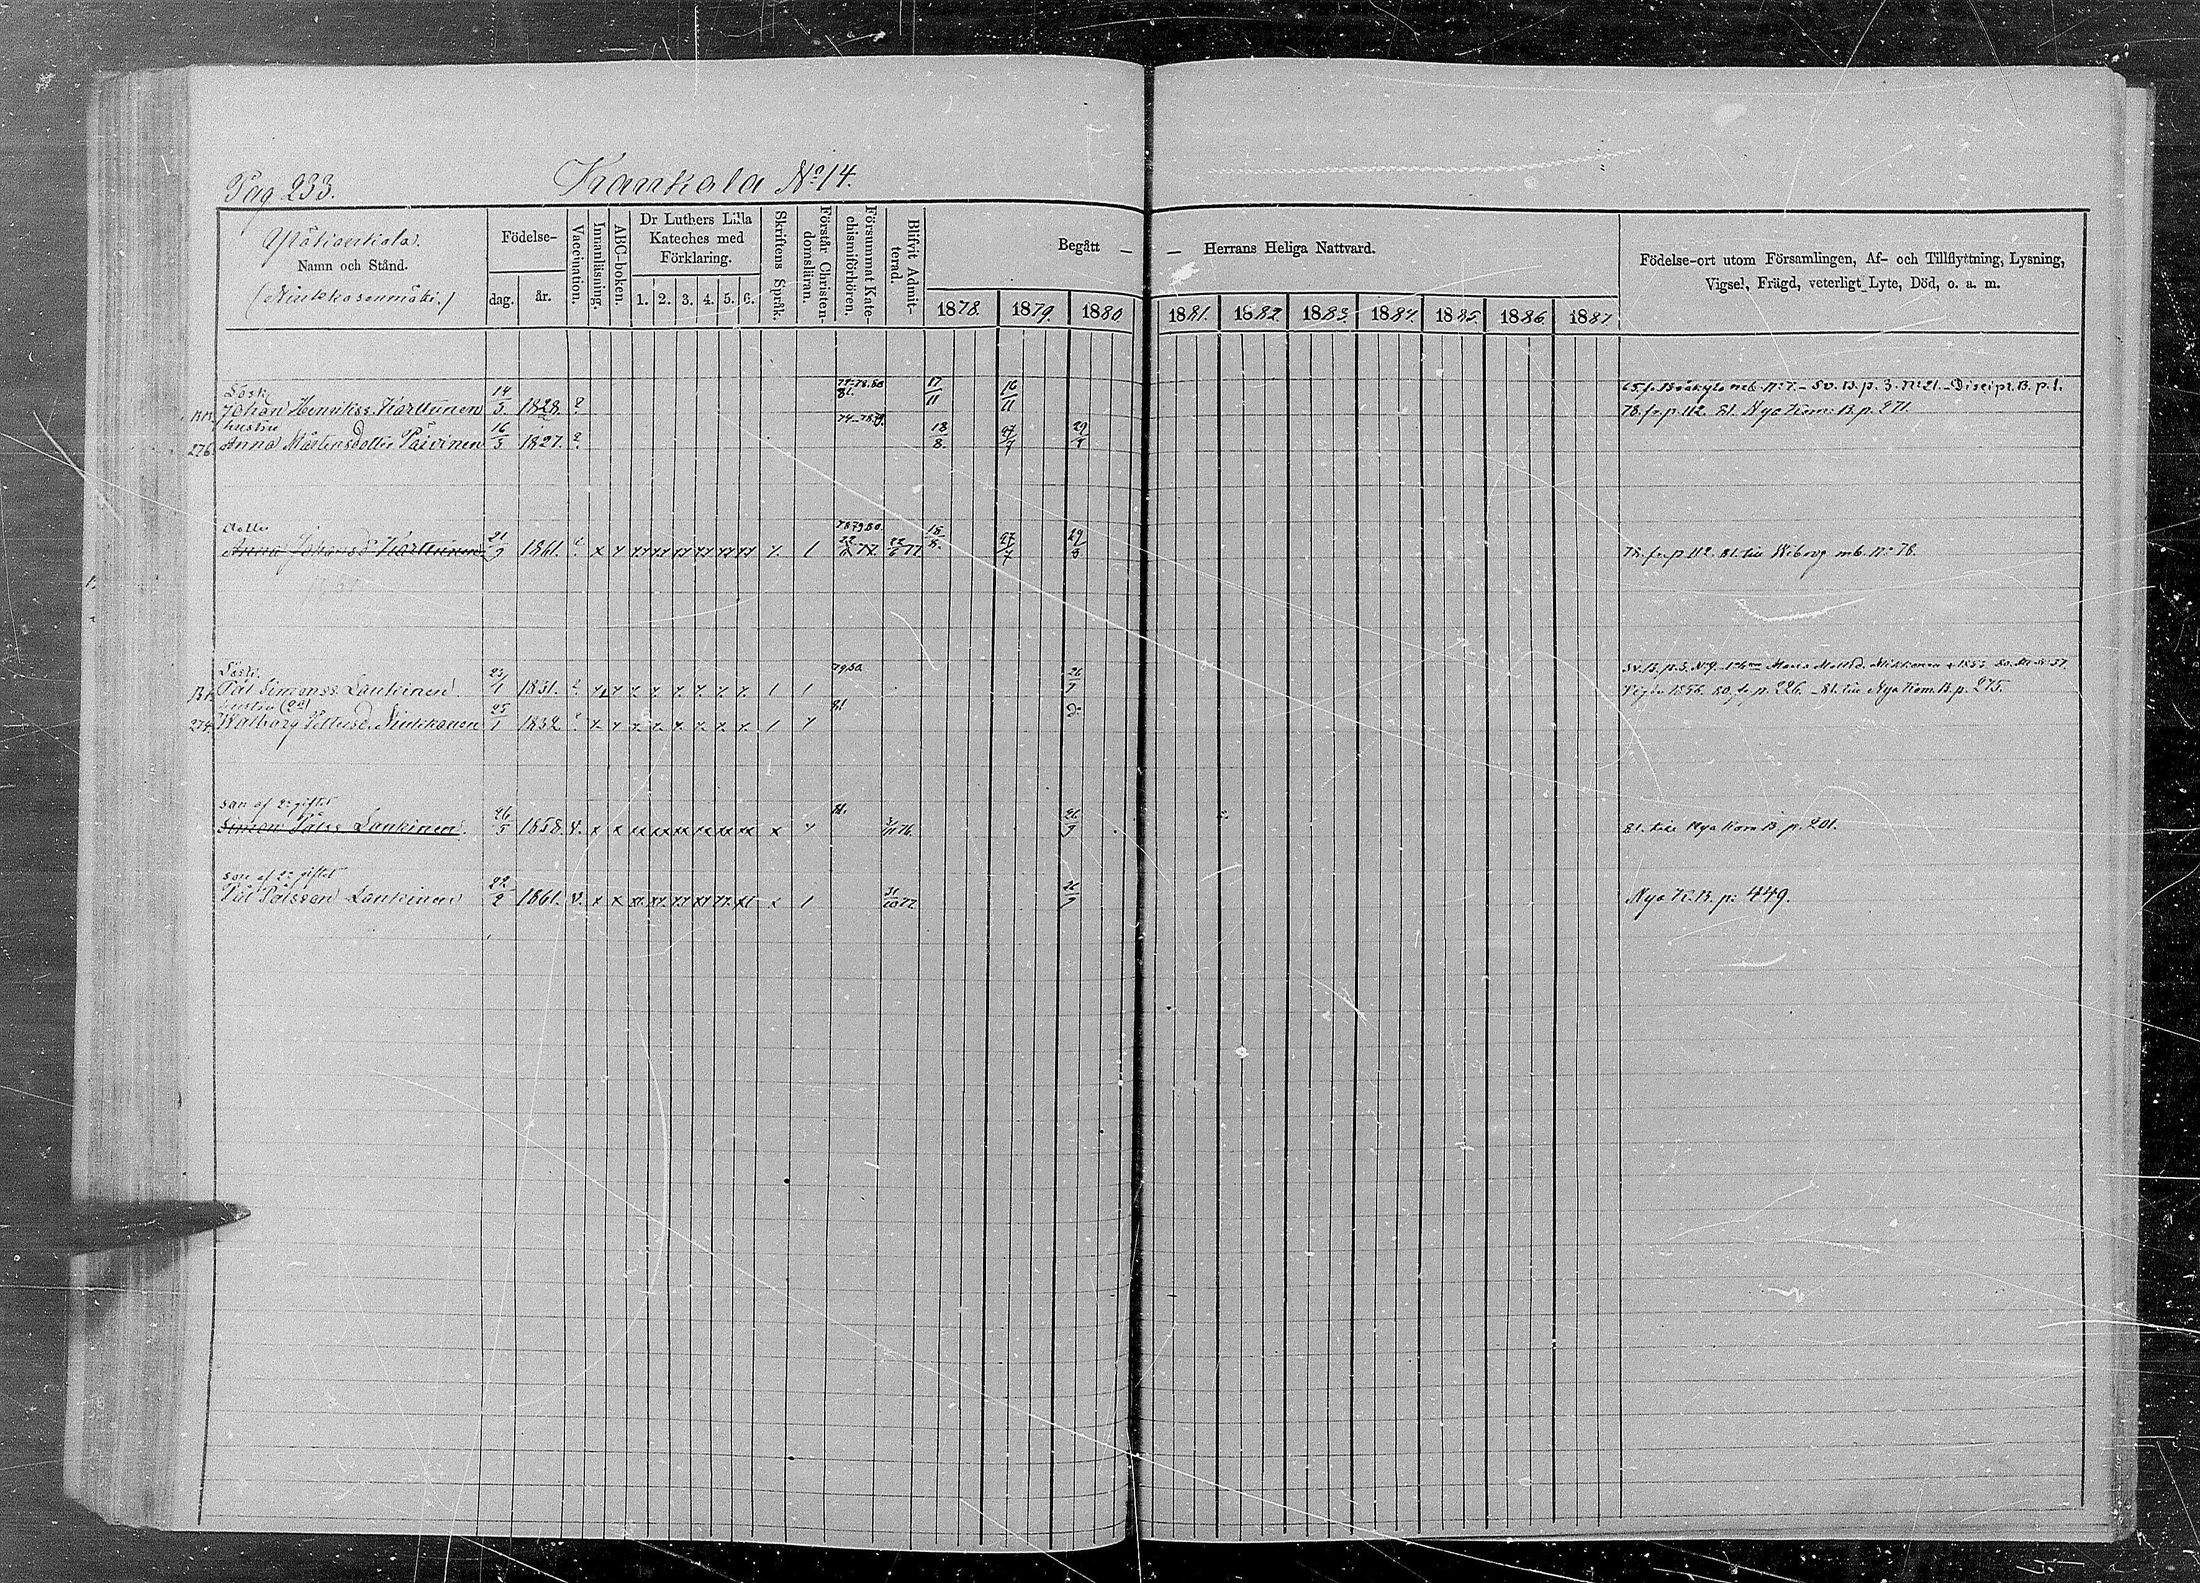 Pag 233.
Kankala No 14.
Namn och Stånd.
(Niukkasenmäki.)
Födelse-
dag. år.
Vaccination.
Innanläsning.
ABC-boken.
Dr Luthers Lilla
Kateches med
Förklaring.
1. 2. 3. 4. 5. 6.
Skriftens Språk.
Förstår Christen-
domsläran.
Försummat Kate-
chismiförhören.
Blifvit Admit-
terad.
Begått —
— Herrans Heliga Nattvard.
1878. 1879. 1880
1881. 1882. 1883. 1884. 1885. 1886. 1887
Födelse-ort utom Församlingen, Af- och Tillflyttning, Lysning,
Vigsel, Frägd, veterligt Lyte, Död, o. a. m.
Johan Henrikss. Karttunen 14/3 1828. ? 17/11 16/11
78. fr. p. 112. 81. Nya Kom. B. p. 271.
hustru
276. Anna Mårtensdotter Päivinen 16/3 1827. ? 74-78.79. 18/8. 27/7
dotter
Anna Johansd. Karttunen 21/9 1861. 78 79 80. 22/6 77. 22/6 77. 18/8. 27/7 29/8
78. fr. p. 112. 81. till Wiborg mb. No 78.
Pål Simonss. Laukinen. 23/1 1831. ? 79.80. 26/9
Vigde 1856. 80. fr. p. 226. 81. till Nya Kom. B. p. 275.
hustru (2a)
Walborg Pettersd. Niukkanen 25/1 1832 ? 81 d:o
son af 2a giftet
Simon Pålss. Laukinen. 26/5 1858. v. 81. 26/9
81. till Nya Kom B. p. 201.
son af 2a giftet
Pål Pålsson Laukinen 22/2 1861. v. 31/10 77 26/9
Nya K. B. p. 449.